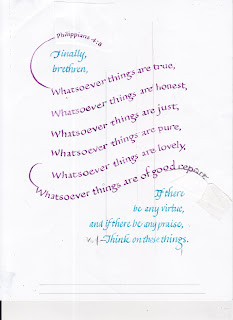 Philippians 4:8
Finally,
brethren,
Whatsoever things are true,
Whatsoever things are honest,
Whatsoever things are just,
Whatsoever things are pure,
Whatsoever things are lovely,
Whatsoever things are of good report
If there
be any virtue,
and if there be any praise,
Think on these things.